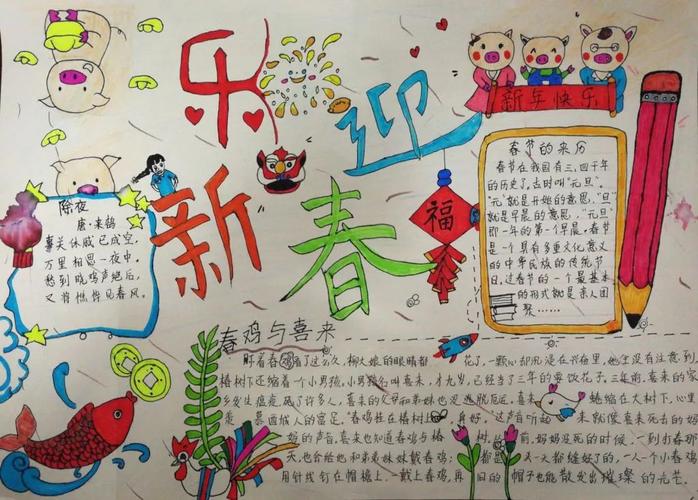 乐迎
新春
新年快乐
福
除夜
唐·来鹄
事关休戚已成空,
万里相思一夜中。
愁到晓鸡声绝后,
又将憔悴见春风。
春节的来历
春节在我国有三、四千年
的历史了,古时叫"元旦"。
"元"就是开始的意思,"旦"
就是早晨的意思,"元旦"
即一年的第一个早晨。春节
是一个具有多重文化意义
的中华民族的传统节
日,过春节的一个最基本
的形式就是亲人团
聚……
春鸡与喜来
盯着春鸡看了这么久,柳大娘的眼睛都花了,一颗心却沉浸在兴奋里,她全没有注意到
椿树下还缩着一个小男孩。小男孩名叫喜来,才九岁,已经当了三年的要饭花子,三年前,喜来的家
乡发生瘟疫,死了许多人,喜来的父母和弟妹也没逃脱厄运。喜来蜷缩在大树下,心里
羡慕固城人的富足。"春鸡挂在椿树上,身好。"这声音听起来就像喜来死去的妈
妈的声音,喜来也知道春鸡与椿树的前,妈妈没死的时候,一到打春那
天,也会给他和弟弟妹妹戴春鸡,都是又一天都缝好了的,一人一个小春鸡
用针线钉在帽檐上,一戴上春鸡,再旧的帽子也能散发出璀璨的光芒。